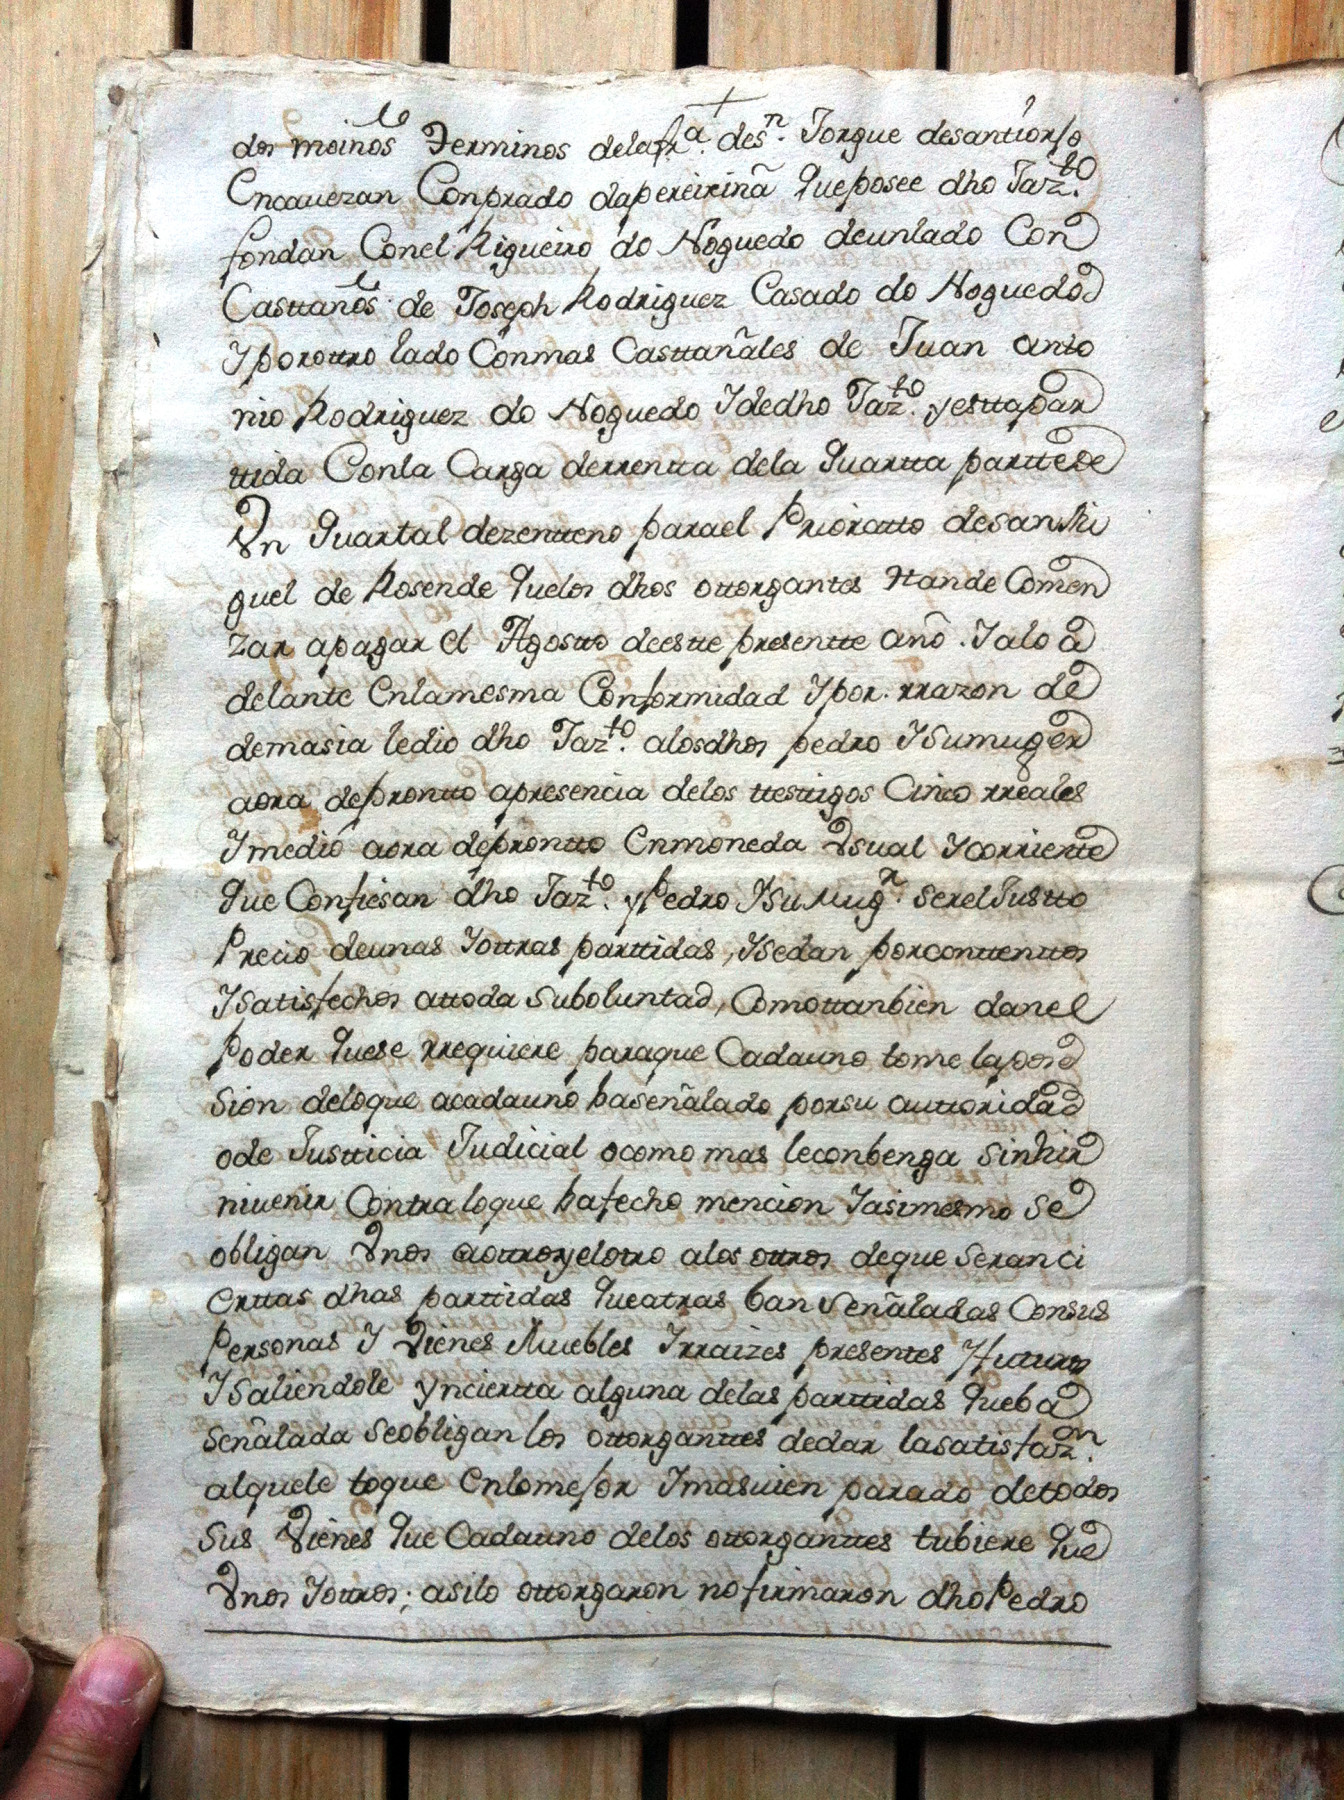 dos moinos terminos dela fra. de sn. Jorgue de santiorjo
Encavezan Con prado da pereirina que posee dho Jazto.
fondan Con el Rigueiro do Noguedo de un lado Con
Casttanos de Joseph Rodriguez Casado do Noguedo
Y por ottro lado Con mas Casttañales de Juan anto
nio Rodriguez do Noguedo Y de dho Jazto. y estta par
ttida Con la Carga de rrentta de la quartta partte de
Un quartal de zentteno para el Prioratto de san Mi
guel de Rosende que los dhos ottorgantes Han de Comen
zar a pagar el Agostto de estte presentte año. Y a lo a
delante En la mesma Conformidad Y por rrazon de
demasia le dio dho Jazto. a los dhos pedro Y su muger
aora de prontto a presencia de los ttesttigos Cinco rreales
Y medio aora de prontto En moneda Usual Y corriente
que Confiesan dho Jazto. y Pedro Y su Mugr. ser el Justto
Precio de unas Y ottras parttidas, Y se dan por conttenttos
Y satisfechos a ttoda su boluntad, Como ttanbien dan el
Poder que se rrequiere para que Cada uno tome la pose
sion de lo que a cada uno ba señalado por su auttoridad
o de Justticia Judicial o como mas le conbenga sin hir
ni venir Contra lo que ba fecho mencion Y asimesmo se
obligan Unos a ottros y el otro a los ottros de que seran ci
erttas dhas parttidas que atras ban señaladas Con sus
Personas Y Vienes Muebles Y rraizes presentes Y futuros
Y saliendole yncierta alguna de las parttidas que ba
señalada se obligan los ottorganttes de dar la satisfazon.
al que le toque En lo mejor Y mas vien parado de todos
sus Vienes que Cada uno de los ottorganttes tubiere que
Unos Y ottros; asi lo ottorgaron no firmaron dho Pedro